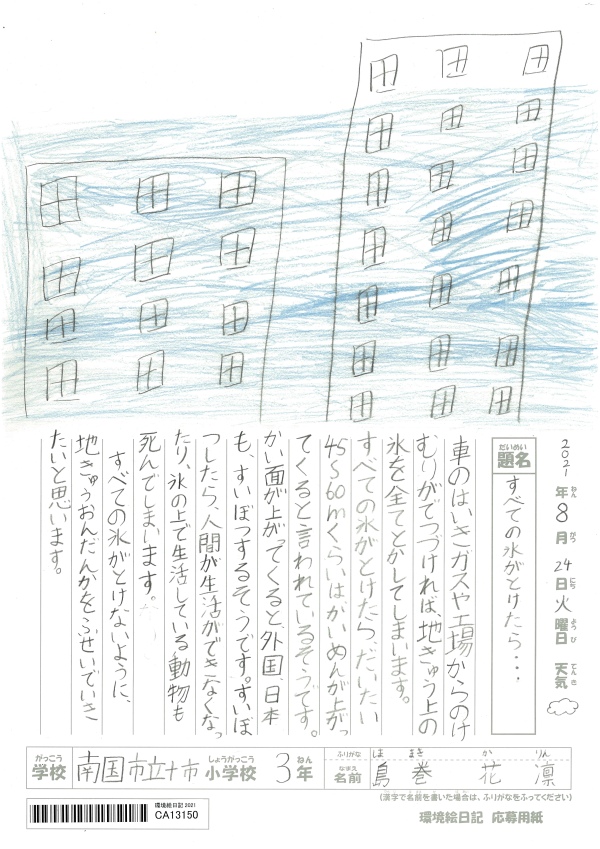 2021年8月24日火曜日 天気
ねん がつ にち ようび てんき
だいめい
題名
すべての氷がとけたら・・・
車のはいきガスや工場からのけ
むりがでつづければ、地きゅう上の
氷を全てとかしてしまいます。
すべての氷がとけたら、だいたい
45~60mくらいはかいめんが上がっ
てくると言われているそうです。
かい面が上がってくると、外国、日本
も、すいぼつするそうです。すいぼ
つしたら、人間が生活ができなくなっ
たり、氷の上で生活している動物も
死んでしまいます。
すべての氷がとけないように、
地きゅうおんだんかをふせいでいき
たいと思います。
がっこう しょうがっこう ねん
学校 南国市立十市小学校 3年
ふりがな しま まき か りん
なまえ
名前 島巻花凛
(漢字で名前を書いた場合は、ふりがなをふってください)
環境絵日記 2021
CA13150
環境絵日記 応募用紙